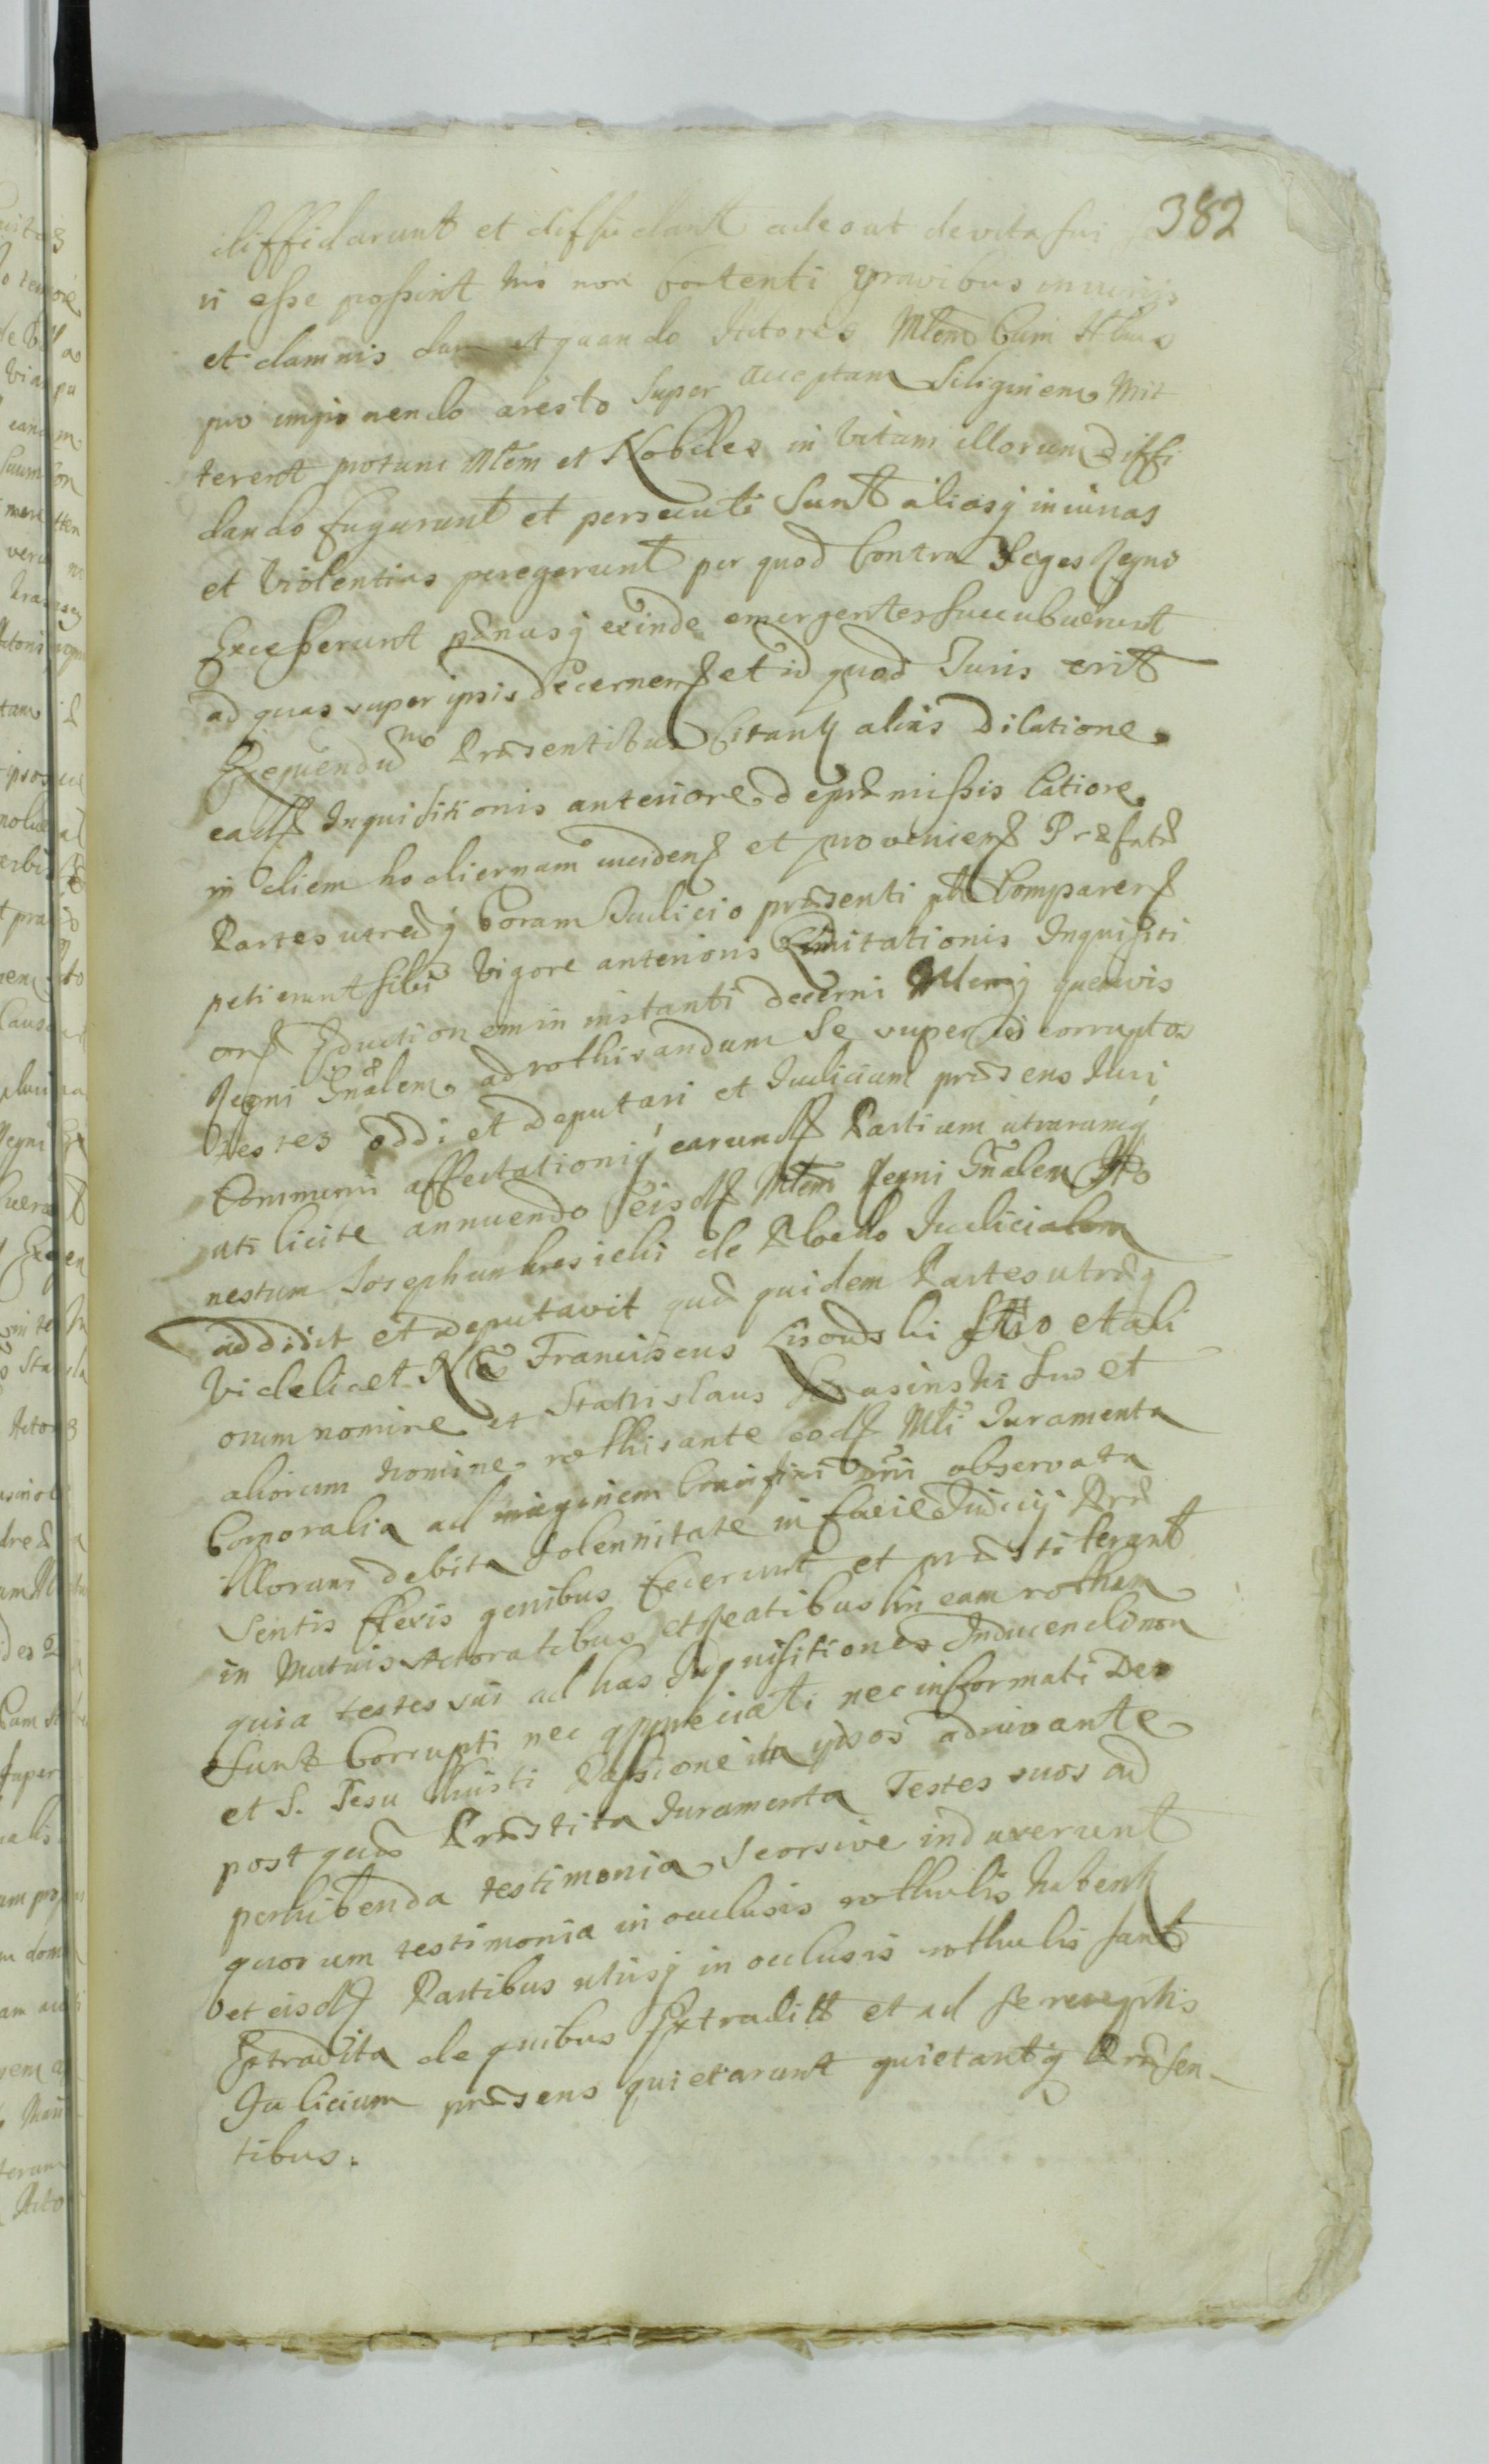 382
diffidarunt et diffidant adeo ut de vita sui
ri esse possint his non contenti gravibus iniuriis
et damnis et quando Actores Mlem cum
pro imponendo aresto super acceptam Siliginem Mit
terent protunc Mlem et Nobiles in vitam illorum Diffi
dando fugarunt et persecuti sunt aliasq iniurias
et violentias peregerunt per quod Contra Leges Regni
Excesserunt pænasq exinde emergentes succubuerunt
ad quas super ipsis decernend et id quod Juris erit
Præsentibus Citantq alias Dilatione
eadf Inquisitionis anteriore de præmissis latiore
in diem hodiernam inciden et provenien Præfatæ
Partes utræq Coram Judicio præsenti ut Comparen
petierunt sibi vigore anterioris Limitationis Inquisiti
on Eductionem in instanti decerni Mlemq quemvis
Regni Gnalem ad rothisandum se super id corruptos
testes addi et deputari et Judicium præsens Juri
Communi affectationiq earundf Partium utrarumq
uti licite annuendo eisdf Mlem Regni Gnalem Ho
nestum Josephum de Judicialem
addidit et deputavit quæ quidem Partes utræq
videlicet Franciscus Lisowski Suo et ali
orum nomine et Stanislaus Krasinski Suo et
aliorum nomine rothisante eodf Mli Juramenta
Corporalia ad imaginem Crucifixi Dni observata
illorum debita solennitate in facie Judicij Præ
sentis flexis genibus fecerunt et præstiterunt
in Mutuis Actoratibus et Reatibus in eam rotham
quia testes sui ad has Inquisitiones Inducendi non
sunt Corrupti nec appreciati nec informati Deo
et S. Jesu Christi Passione ita ipsos adiuvante
post quæ Præstita Juramenta Testes suos ad
perhibenda testimonia seorsive induxerunt
quorum testimonia in occlusis rothulis habent
et eisdf Partibus utrisq in occlusis rothulis sunt
Extradita de quibus Extraditt et ad se receptis
Judicium præsens quietarunt quietantq Præsen-
tibus.